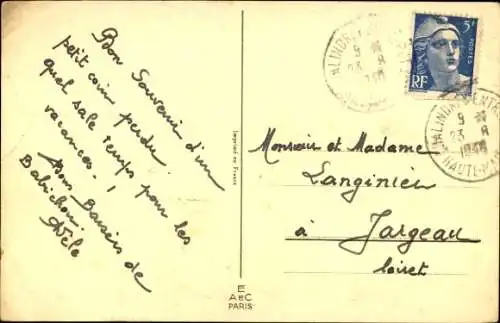 Bon Souvenir d'un
petit coin perdu
quel sale temps pour les
vacances - !
Bons Baisers de
Babichou
Imprimé en France
E
A B C
PARIS
5F
POSTES
RF
9 H
23 8
1946
HAUTE-M
Monsieur et Madame
Langinier
à Jargeau
Loiret